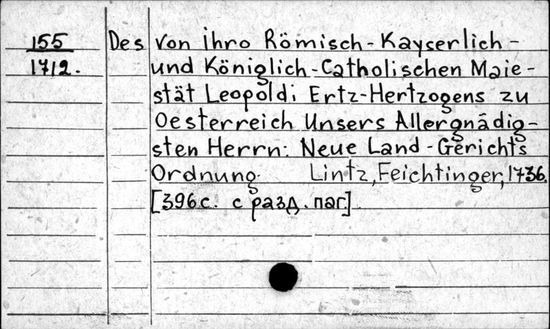 155 Des von ihro Römisch-Kayserlich-
1712. und Königlich-Catholischen Maie-
stät Leopoldi Ertz-Hertzogens zu
Oesterreich Unsers Allergnädig-
sten Herrn: Neue Land-Gerichts
Ordnung. Lintz, Feichtinger, 1736.
[396 с. с разд. паг.]